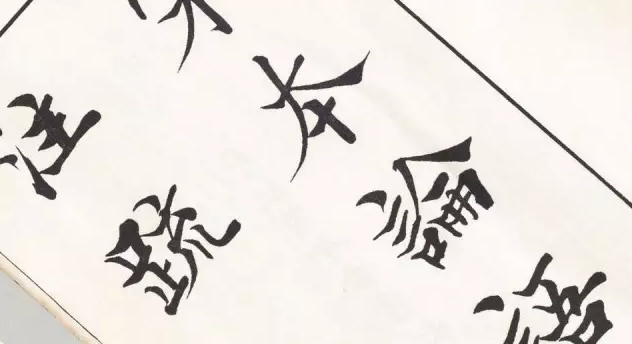 本論語
注疏